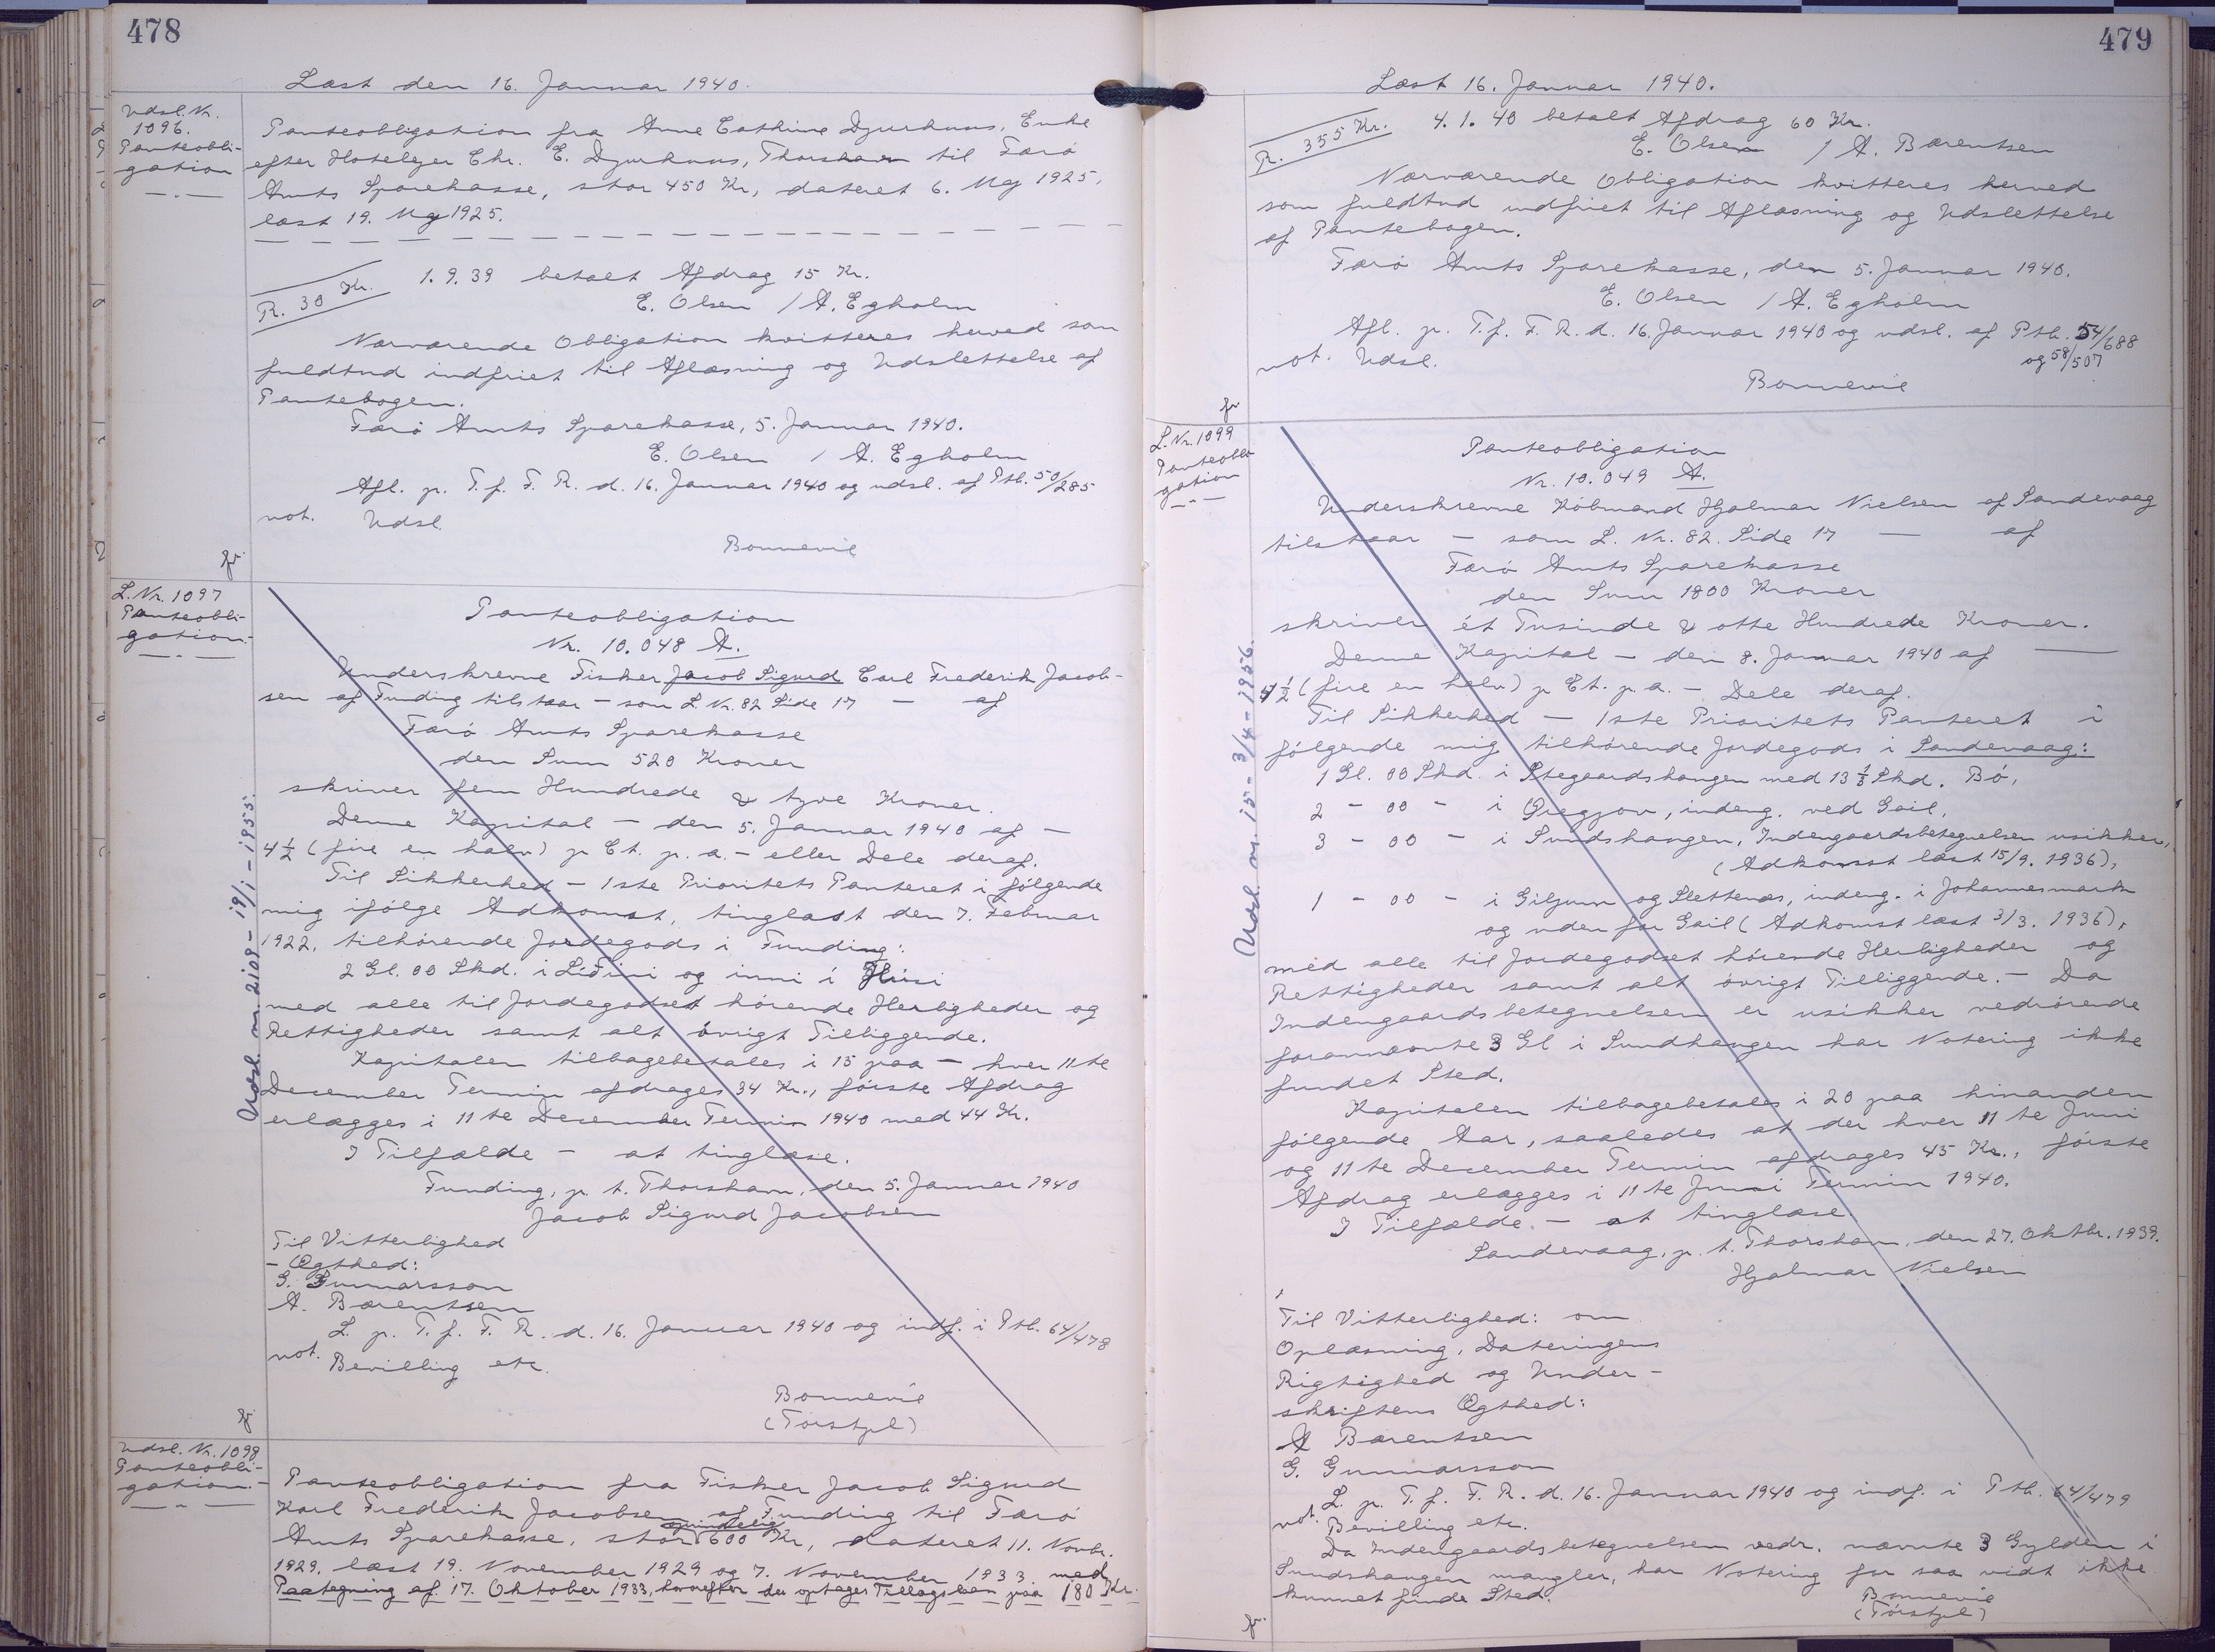 478
Læst den 16. Januar 1940.
Udsl. Nr.
1096.
Panteobli-
gation
Panteobligation fra Anne Cathrine Djurhuus, Enke
efter Hotelejer Chr. E. Djurhuus, Thorshavn til Færö
Amts Sparekasse, stor 450 Kr, dateret 6. Maj 1925,
læst 19. Maj 1925.
R. 30 Kr. 1.9.39 betalt Afdrag 15 Kr.
E. Olsen / A. Egholm
Nærværende Obligation kvitteres herved som
fuldtud indfriet til Aflæsning og Udslettelse af
Pantebogen.
Færö Amts Sparekasse, 5. Januar 1940.
E. Olsen / A. Egholm
Afl. p. T. f. F. R. d. 16. Januar 1940 og udsl. af Ptb. 50/285
not. Udsl.
Bonnevie
fr
L. Nr. 1097
Panteobli-
gation.
Panteobligation
Nr. 10.048 A.
Underskrevne Fisker Jacob Sigurd Carl Frederik Jacob-
sen af Funding tilstaar - som L. Nr. 82 Side 17 - af
Færö Amts Sparekasse
den Sum 520 Kroner
skriver fem Hundrede & tyve Kroner.
Denne Kapital - den 5. Januar 1940 af -
4 1/2 (fire en halv) p Ct. p. a. - eller Dele deraf.
Til Sikkerhed - 1ste Prioritets Panteret i følgende
mig ifølge Adkomst, tinglæst den 7. Februar
1922, tilhörende Jordegods i Funding:
2 Gl. 00 Skd. i Líðini og inni í Húsi
med alle til Jordegodset hörende Herligheder og
Rettigheder samt alt övrigt Tilliggende.
Kapitalen tilbagebetales i 15 paa - hver 11te
December Termin afdrages 34 Kr., förste Afdrag
erlægges i 11te December Termin 1940 med 44 Kr.
I Tilfælde - at tinglæse.
Funding, p. t. Thorshavn, den 5. Januar 1940
Jacob Sigurd Jacobsen
Til Vitterlighed
- Ægthed:
G. Gunnarsson
A. Bærentsen
L. p. T. f. F. R. d. 16. Januar 1940 og indf. i Ptb. 64/478
not. Bevilling etc.
Bonnevie
(Tórstpl)
fr
Udsl. nr. 2109 - 19/1 - 1955.
Udsl. Nr. 1098
Panteobli-
gation.
Panteobligation fra Fisker Jacob Sigurd
Karl Frederik Jacobsen af Funding til Færö
Amts Sparekasse, stor oprindelig 600 Kr, dateret 11. Novbr.
1929, læst 19. November 1929 og 7. November 1933 med
Paategning af 17. Oktober 1933, hvorefter der optages Tillægslaan paa 180 Kr.
479
Læst 16. Januar 1940.
R. 355 Kr. 4.1.40 betalt Afdrag 60 Kr.
E. Olsen / A. Bærentsen
Nærværende Obligation kvitteres herved
som fuldtud indfriet til Aflæsning og Udslettelse
af Pantebogen.
Færö Amts Sparekasse, den 5. Januar 1940.
E. Olsen / A. Egholm
Afl. p. T. f. F. R. d. 16. Januar 1940 og udsl. af Ptb. 54/688
og 58/507
not. Udsl.
Bonnevie
fr
L. Nr. 1099
Panteobli-
gation
Panteobligation
Nr. 10.049 A.
UnderskrevneKöbmand Hjalmar Nielsen af Sandevaag
tilstaar - som L. Nr. 82 Side 17 - af
Færö Amts Sparekasse
den Sum 1800 Kroner
skriver ét Tusinde & otte Hundrede Kroner.
Denne Kapital - den 8. Januar 1940 af -
4 1/2 (fire en halv) p Ct. p. a. - Dele deraf.
Til Sikkerhed - 1ste Prioritets Panteret i
følgende mig tilhörende Jordegods i Sandevaag:
1 Gl. 00 Skd. i Stegaardshangen med 13 1/3 Skd. Bö,
2 - 00 - i Gregjov, indeng. ved Gail,
3 - 00 - i Sundshangen, Indengaardsbetegnelsen usikker,
(Adkomst læst 15/9. 1936),
1 - 00 - i Giljum og Slettenæs, indeng. i Johannesmark
og uden for Gail (Adkomst læst 3/3. 1936),
med alle til Jordegodset hörende Herligheder og
Rettigheder samt alt övrigt Tilliggende. - Da
Indengaardsbetegnelsen er usikker vedrörende
forannævnte 3 Gl i Sundhangen har Notering ikke
fundet Sted.
Kapitalen tilbagebetales i 20 paa hinanden
følgende Aar, saaledes at der hver 11te Juni
og 11te December Termin afdrages 45 Kr., förste
Afdrag erlægges i 11te Juni Termin 1940.
I Tilfælde. - at tinglæse.
Sandevaag, p. t. Thorshavn, den 27. Oktbr. 1939.
Hjalmar Nielsen
Til Vitterlighed: om
Oplæsning, Dateringens
Rigtighed og Under-
skriftens Ægthed:
A Bærentsen
G. Gunnarsson
L. p. T. f. F. R. d. 16. Januar 1940 og indf. i Ptb. 64/479
not. Bevilling etc.
Da Indengaardsbetegnelsen vedr. nævnte 3 Gylden i
Sundshangen mangler, har Notering for saa vidt ikke
kunnet finde Sted.
Bonnevie
(Tórstpl)
fr.
Udsl. nr. 15 - 3/4 - 1956.